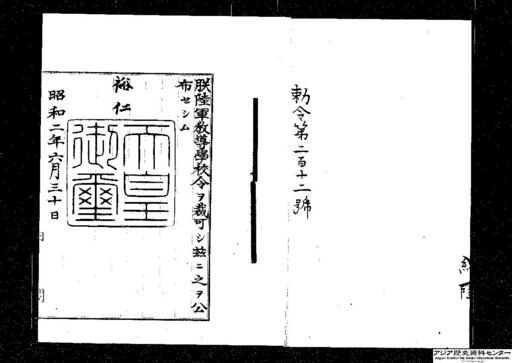 勅令第二百十二號
朕陸軍教導學校令ヲ裁可シ茲ニ之ヲ公
布セシム
裕仁
天皇御璽
昭和二年六月三十日
アジア歴史資料センター
Japan Center for Asian Historical Records